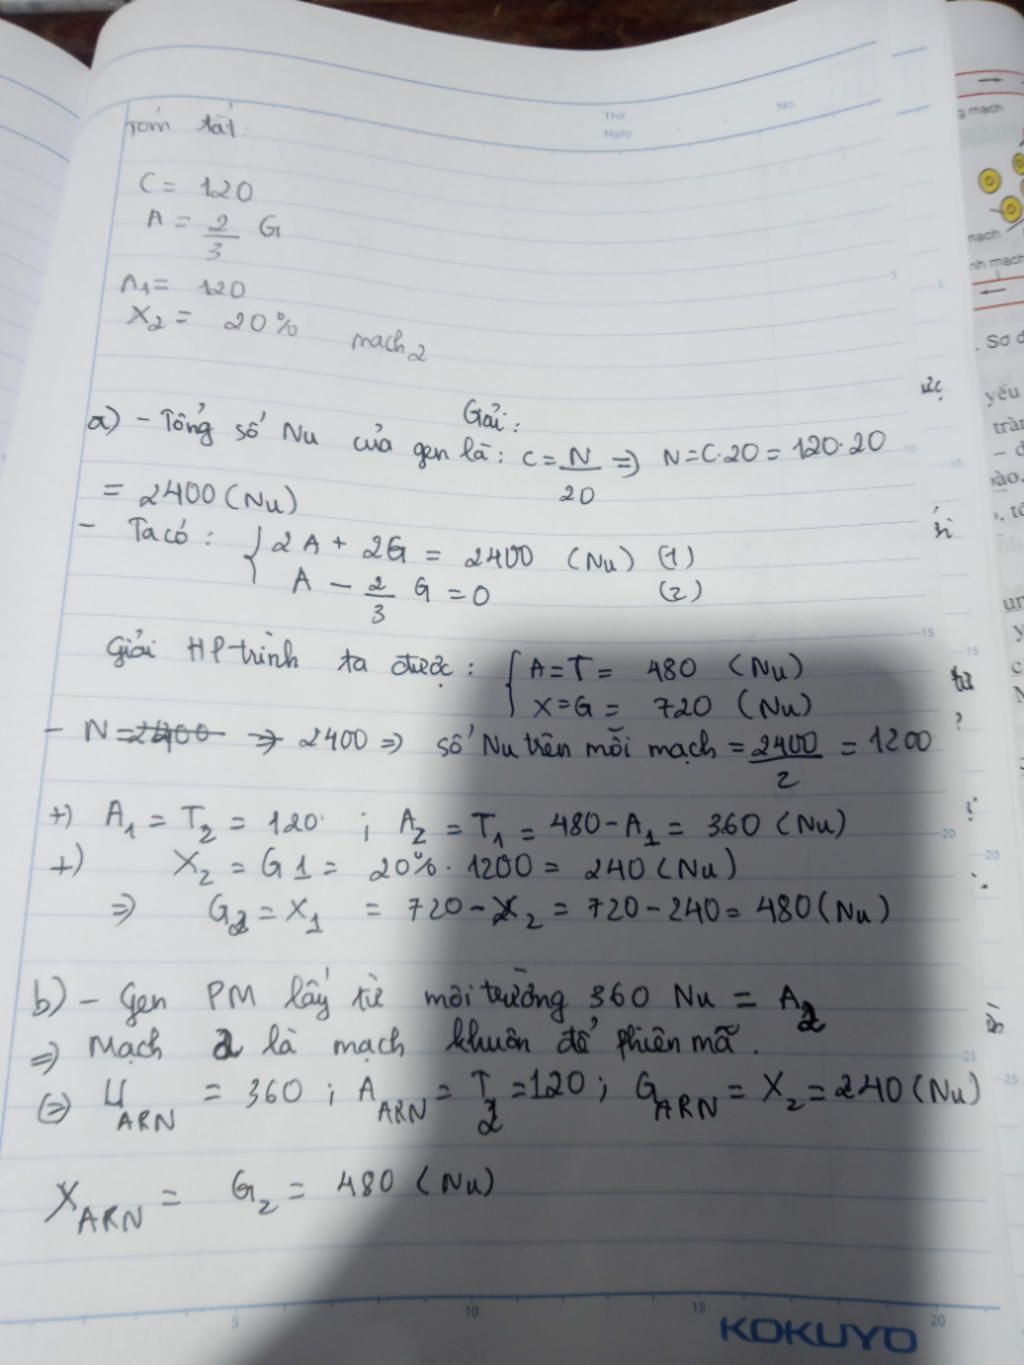 Tóm tắt:
Thứ
Ngày
No.
C = 120
A = 2/3 G
A1 = 120
X2 = 20% mạch 2
Giải:
a) - Tổng số Nu của gen là: C = N/20 => N = C.20 = 120.20
= 2400 (Nu)
- Ta có: { 2A + 2G = 2400 (Nu) (1)
A - 2/3 G = 0 (2)
Giải HP trình ta được: { A = T = 480 (Nu)
X = G = 720 (Nu)
- N = 2400 => 2400 => số Nu trên mỗi mạch = 2400/2 = 1200
+) A1 = T2 = 120 ; A2 = T1 = 480 - A1 = 360 (Nu)
+) X2 = G1 = 20% . 1200 = 240 (Nu)
=> G2 = X1 = 720 - X2 = 720 - 240 = 480 (Nu)
b) - Gen PM lấy từ môi trường 360 Nu = A2
=> Mạch 2 là mạch khuôn để phiên mã.
(=) U ARN = 360 ; A ARN = T2 = 120 ; G ARN = X2 = 240 (Nu)
X ARN = G2 = 480 (Nu)
5 10 15 20
KOKUYO
mạch
nh mạch
. Sơ đ
yếu